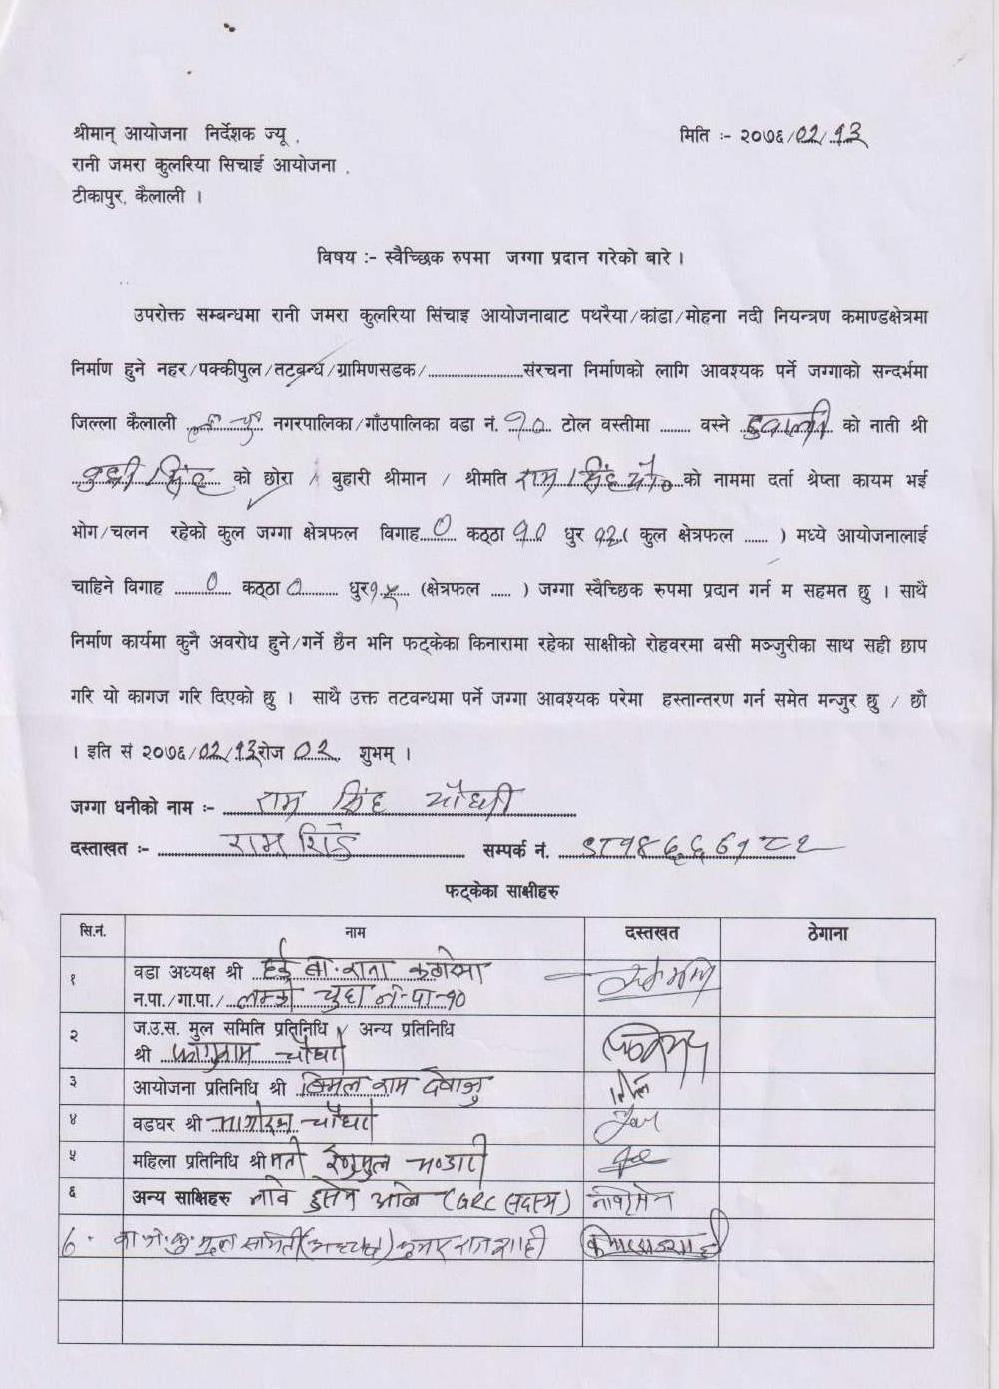 श्रीमान् आयोजना निर्देशक ज्यू ,
मिति :- २०७६/०२/१३
रानी जमरा कुलरिया सिचाई आयोजना ,
टीकापुर, कैलाली ।
विषय :- स्वैच्छिक रुपमा जग्गा प्रदान गरेको बारे ।
उपरोक्त सम्बन्धमा रानी जमरा कुलरिया सिंचाइ आयोजनाबाट पथरैया/कांडा/मोहना नदी नियन्त्रण कमाण्डक्षेत्रमा
निर्माण हुने नहर/पक्कीपुल/तटबन्ध/ग्रामिणसडक/........................संरचना निर्माणको लागि आवश्यक पर्ने जग्गाको सन्दर्भमा
जिल्ला कैलाली ल. चु. नगरपालिका/गाँउपालिका वडा नं. १० टोल वस्तीमा ........ वस्ने को नाती श्री
सिंह को छोरा / बुहारी श्रीमान / श्रीमति राम सिंह चौ० को नाममा दर्ता श्रेष्ता कायम भई
भोग/चलन रहेको कुल जग्गा क्षेत्रफल विगाह ० कठ्ठा १० धुर ( कुल क्षेत्रफल ...... ) मध्ये आयोजनालाई
चाहिने विगाह ० कठ्ठा ० धुर (क्षेत्रफल ...... ) जग्गा स्वैच्छिक रुपमा प्रदान गर्न म सहमत छु । साथै
निर्माण कार्यमा कुनै अवरोध हुने/गर्ने छैन भनि फट्केका किनारामा रहेका साक्षीको रोहवरमा बसी मञ्जुरीका साथ सही छाप
गरि यो कागज गरि दिएको छु । साथै उक्त तटवन्धमा पर्ने जग्गा आवश्यक परेमा हस्तान्तरण गर्न समेत मन्जुर छु / छौ
। इति सं २०७६/०२/१३ रोज ०२ शुभम् ।
जग्गा धनीको नाम :- राम सिंह चौधरी
दस्ताखत :- राम सम्पर्क नं.
फट्केका साक्षीहरु
सि.नं. नाम दस्तखत ठेगाना
१ वडा अध्यक्ष श्री राना
न.पा./गा.पा./ लम्की चुहा न.पा-१०
२ ज.उ.स. मुल समिति प्रतिनिधि / अन्य प्रतिनिधि
श्री फागुराम चौधरी
३ आयोजना प्रतिनिधि श्री विमल राम देवाजु
४ वडघर श्री चौधरी
५ महिला प्रतिनिधि श्री मती भण्डारी
६ अन्य साक्षिहरु (GRC सदस्य)
मूल समिती (अध्यक्ष) कुमार राजशाही